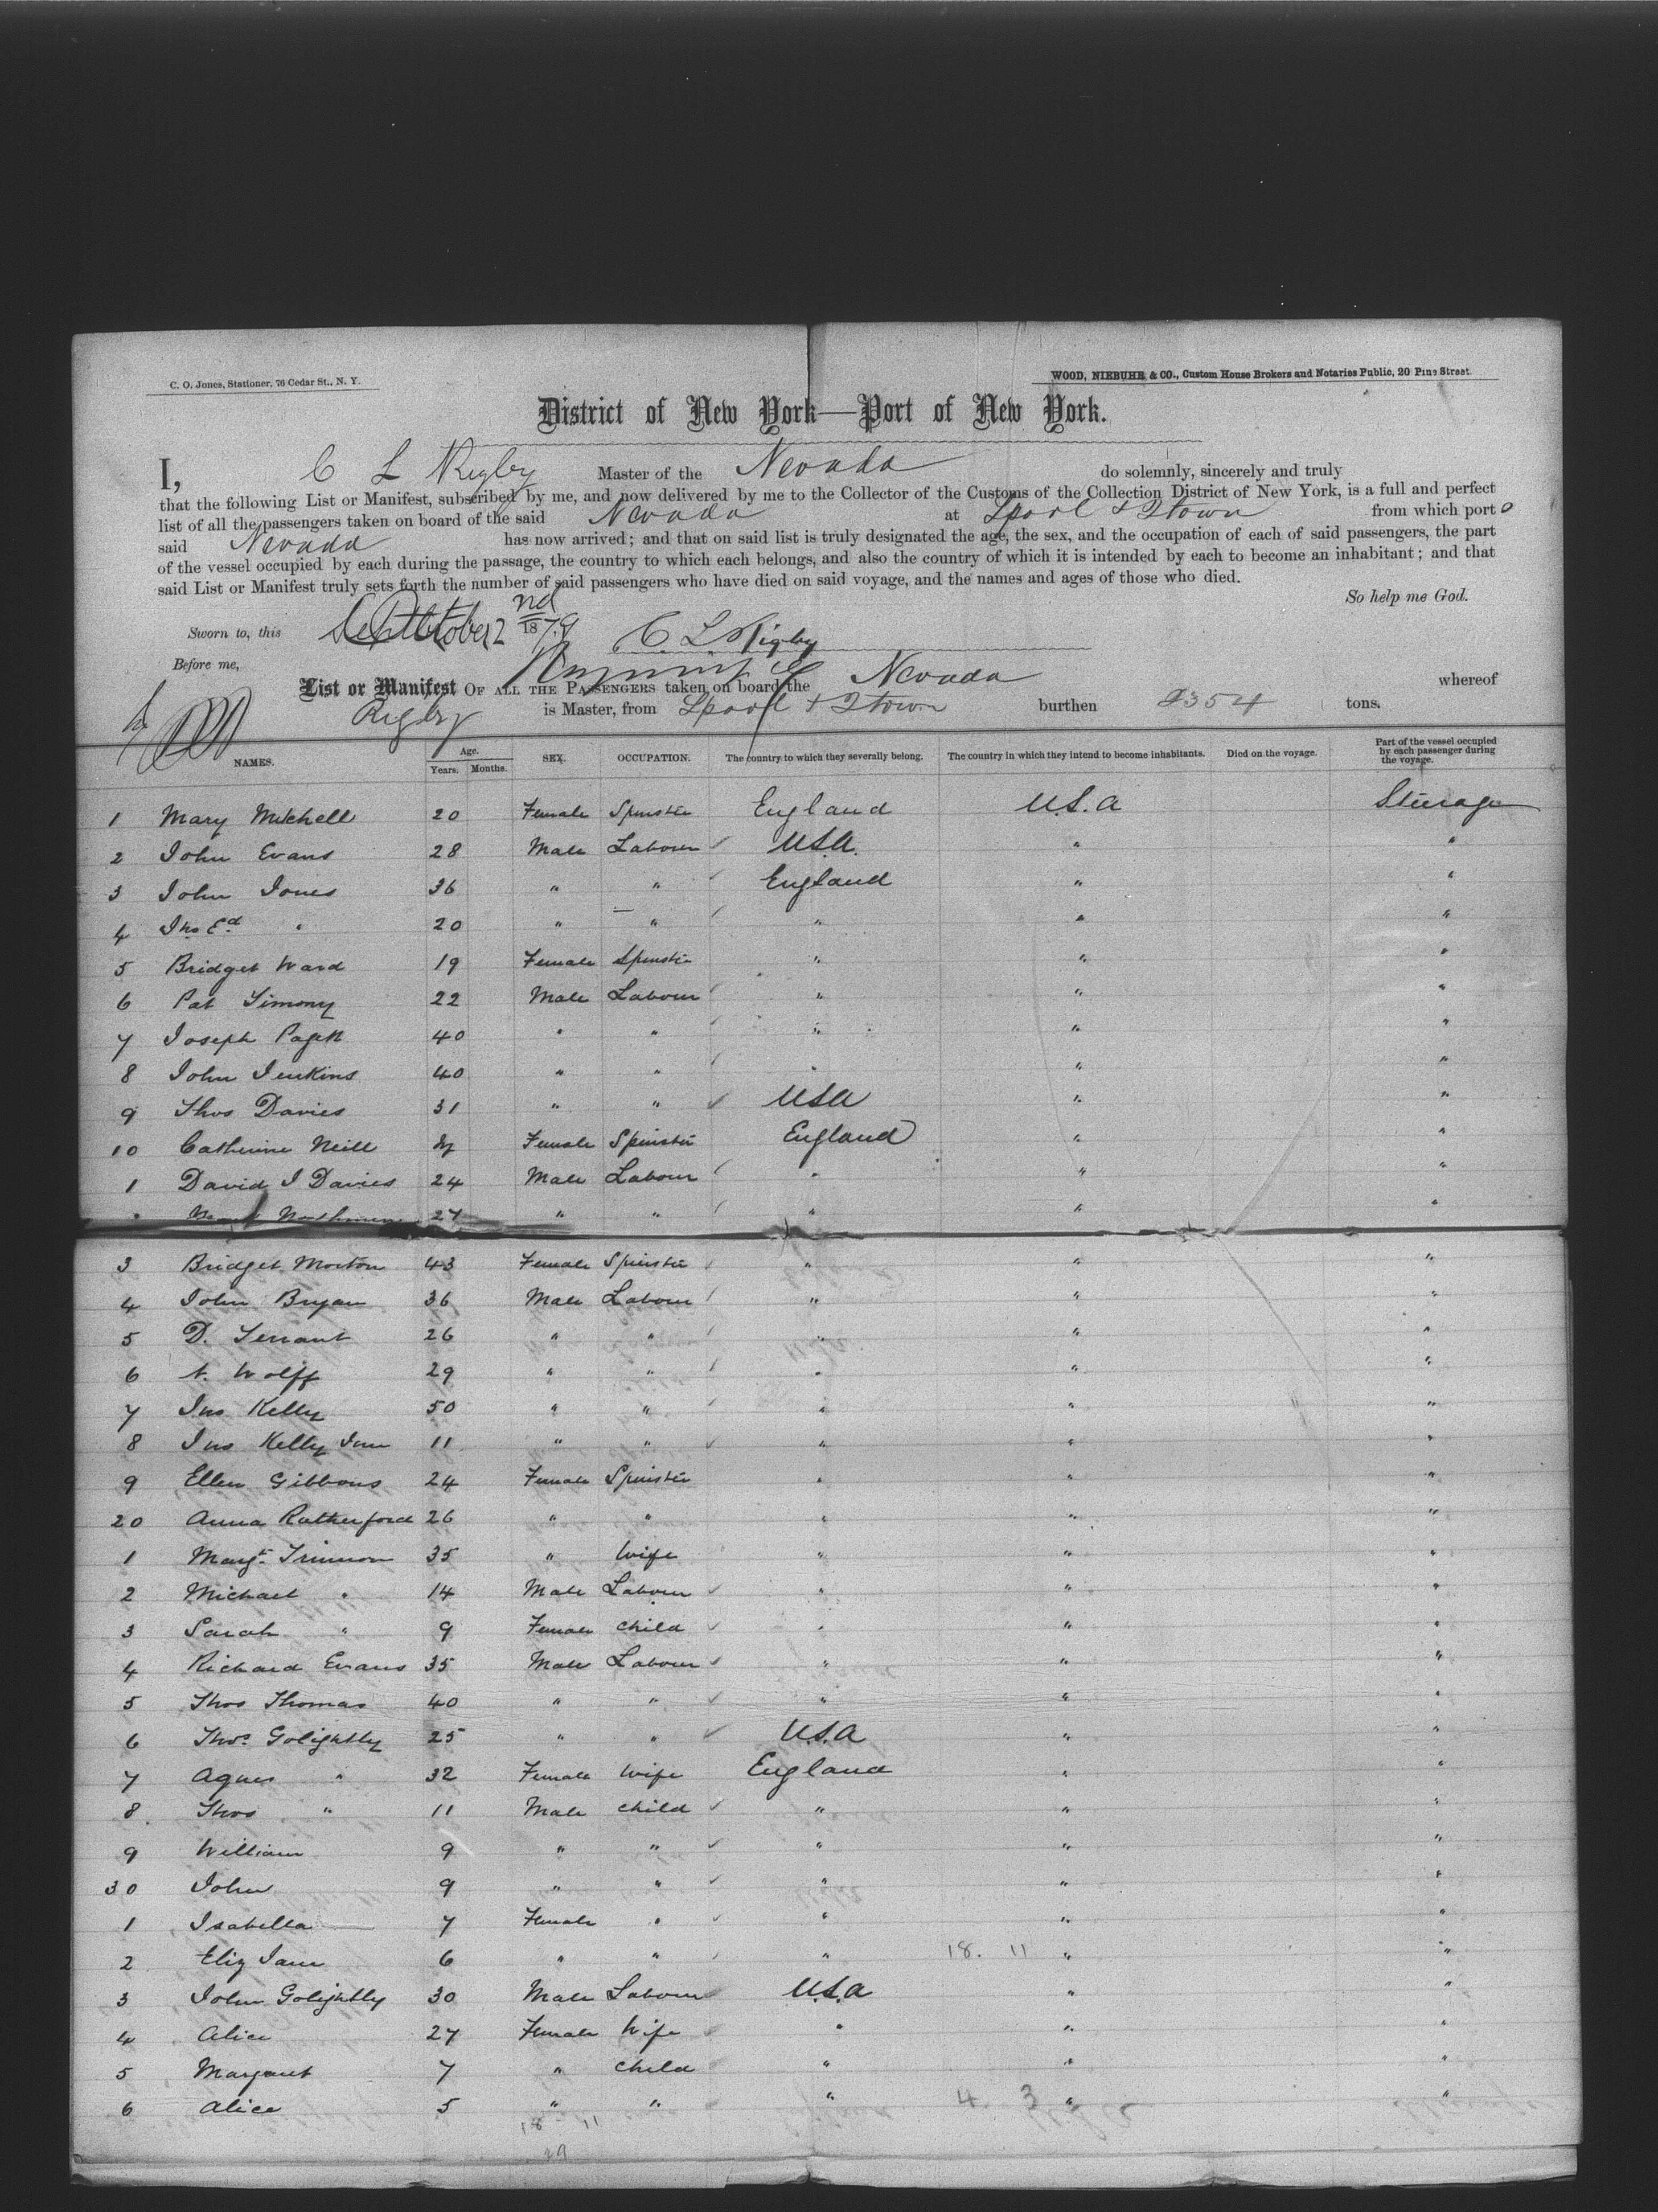 C. O. Jones, Stationer, 76 Cedar St., N. Y.
WOOD, NIEBUHR & CO., Custom House Brokers and Notaries Public, 20 Pine Street.
District of New York—Port of New York.
I, C L Rigby Master of the Nevada do solemnly, sincerely and truly
that the following List or Manifest, subscribed by me, and now delivered by me to the Collector of the Customs of the Collection District of New York, is a full and perfect
list of all the passengers taken on board of the said Nevada at Lpool & Qtown from which port
said Nevada has now arrived; and that on said list is truly designated the age, the sex, and the occupation of each of said passengers, the part
of the vessel occupied by each during the passage, the country to which each belongs, and also the country of which it is intended by each to become an inhabitant; and that
said List or Manifest truly sets forth the number of said passengers who have died on said voyage, and the names and ages of those who died.
So help me God.
Sworn to, this October 2nd 1879 C. L. Rigby
Before me,
List or Manifest OF ALL THE PASSENGERS taken on board the Nevada whereof
Rigby is Master, from Lpool & Qtown burthen 2354 tons.
NAMES. Age. Years. Months. SEX. OCCUPATION. The country to which they severally belong. The country in which they intend to become inhabitants. Died on the voyage. Part of the vessel occupied by each passenger during the voyage.
1 Mary Mitchell 20 Female Spinster England U.S.A Steerage
2 John Evans 28 Male Labourer USA " "
3 John Jones 36 " " England " "
4 Jno Ed " 20 " " " " "
5 Bridget Ward 19 Female Spinster " " "
6 Pat Timony 22 Male Labourer " " "
7 Joseph 40 " " " " "
8 John Jenkins 40 " " " " "
9 Thos Davies 31 " " USA " "
10 Catherine Neill Female Spinster England " "
1 David J Davies 24 Male Labourer " " "
27 " " " " "
3 Bridget Morton 43 Female Spinster " " "
4 John Bryan 36 Male Labourer " " "
5 D. Tennant 26 " " " " "
6 Wolff 29 " " " " "
7 Jno Kelly 50 " " " " "
8 Jno Kelly Jun 11 " " " " "
9 Ellen Gibbons 24 Female Spinster " " "
20 Anna Rutherford 26 " " " " "
1 Margt 35 " Wife " " "
2 Michael " 14 Male Labourer " " "
3 Sarah " 9 Female Child " " "
4 Richard Evans 35 Male Labourer " " "
5 Thos Thomas 40 " " " " "
6 Thos Golightly 25 " " U.S.A " "
7 Agnes " 32 Female Wife England " "
8 Thos " 11 Male Child " " "
9 William 9 " " " " "
30 John 9 " " " " "
1 Isabella 7 Female " " " "
2 Eliz Jane 6 " " " 18. 11 " "
3 John Golightly 30 Male Labourer U.S.A " "
4 Alice 27 Female Wife " " "
5 Margaret 7 " Child " " "
6 Alice 5 " " " 4. 3 " "
18 11
29